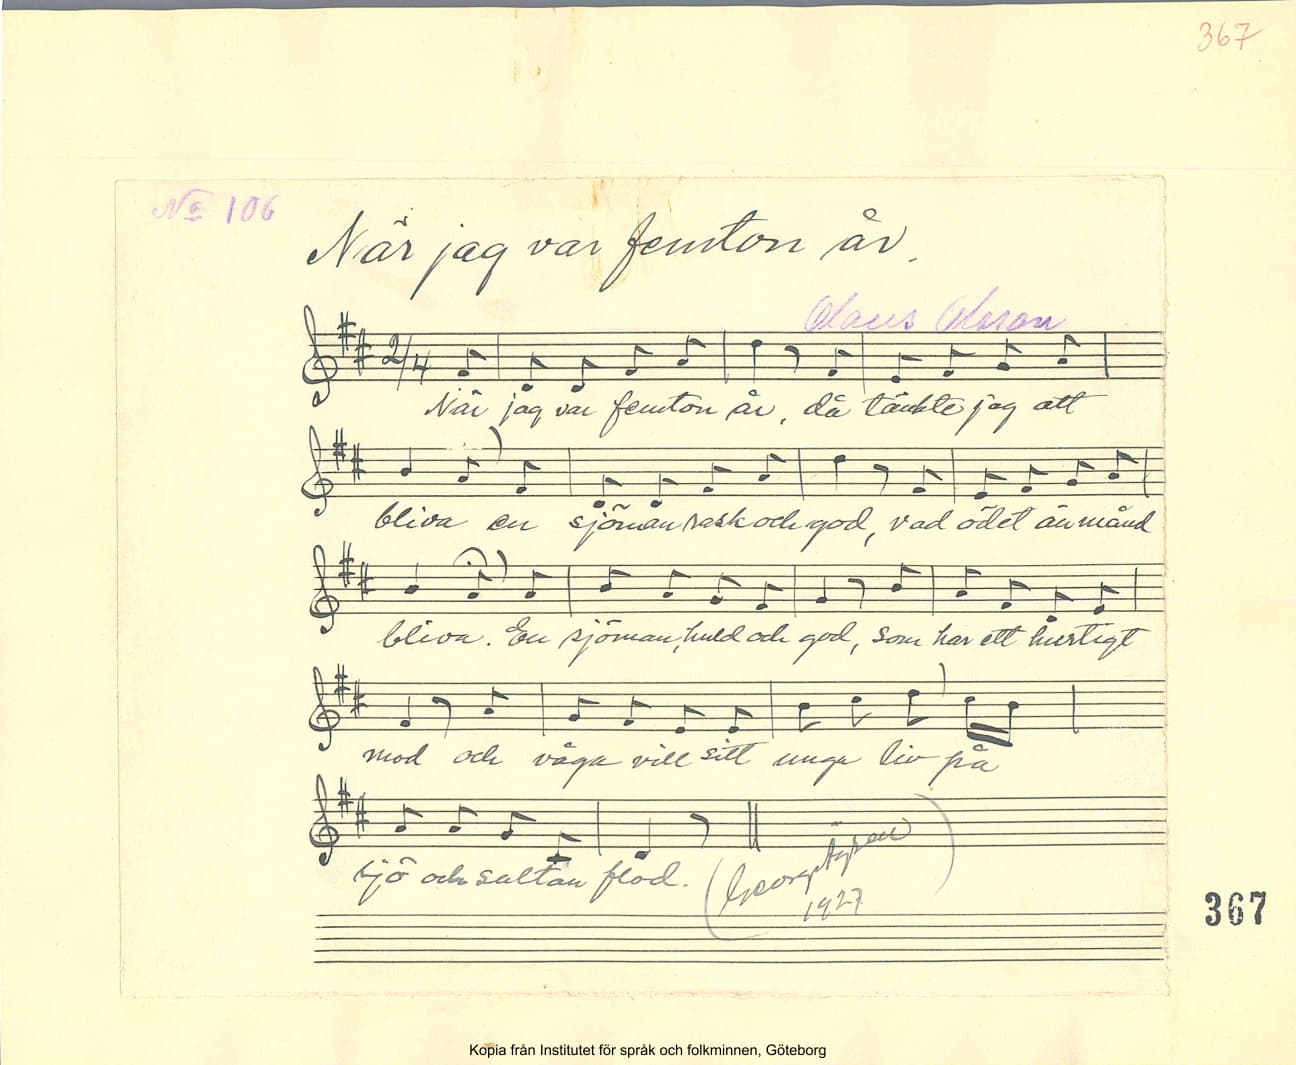 367
No 106
När jag var femton år.
Olaus Olsson
2/4
När jag var femton år, då tänkte jag att
bliva en sjöman rask och god, vad ödet än månd
bliva. En sjöman, huld och god, som har ett hurtigt
mod och våga vill sitt unga liv på
sjö och saltan flod.
(Georg
1927)
367
Kopia från Institutet för språk och folkminnen, Göteborg